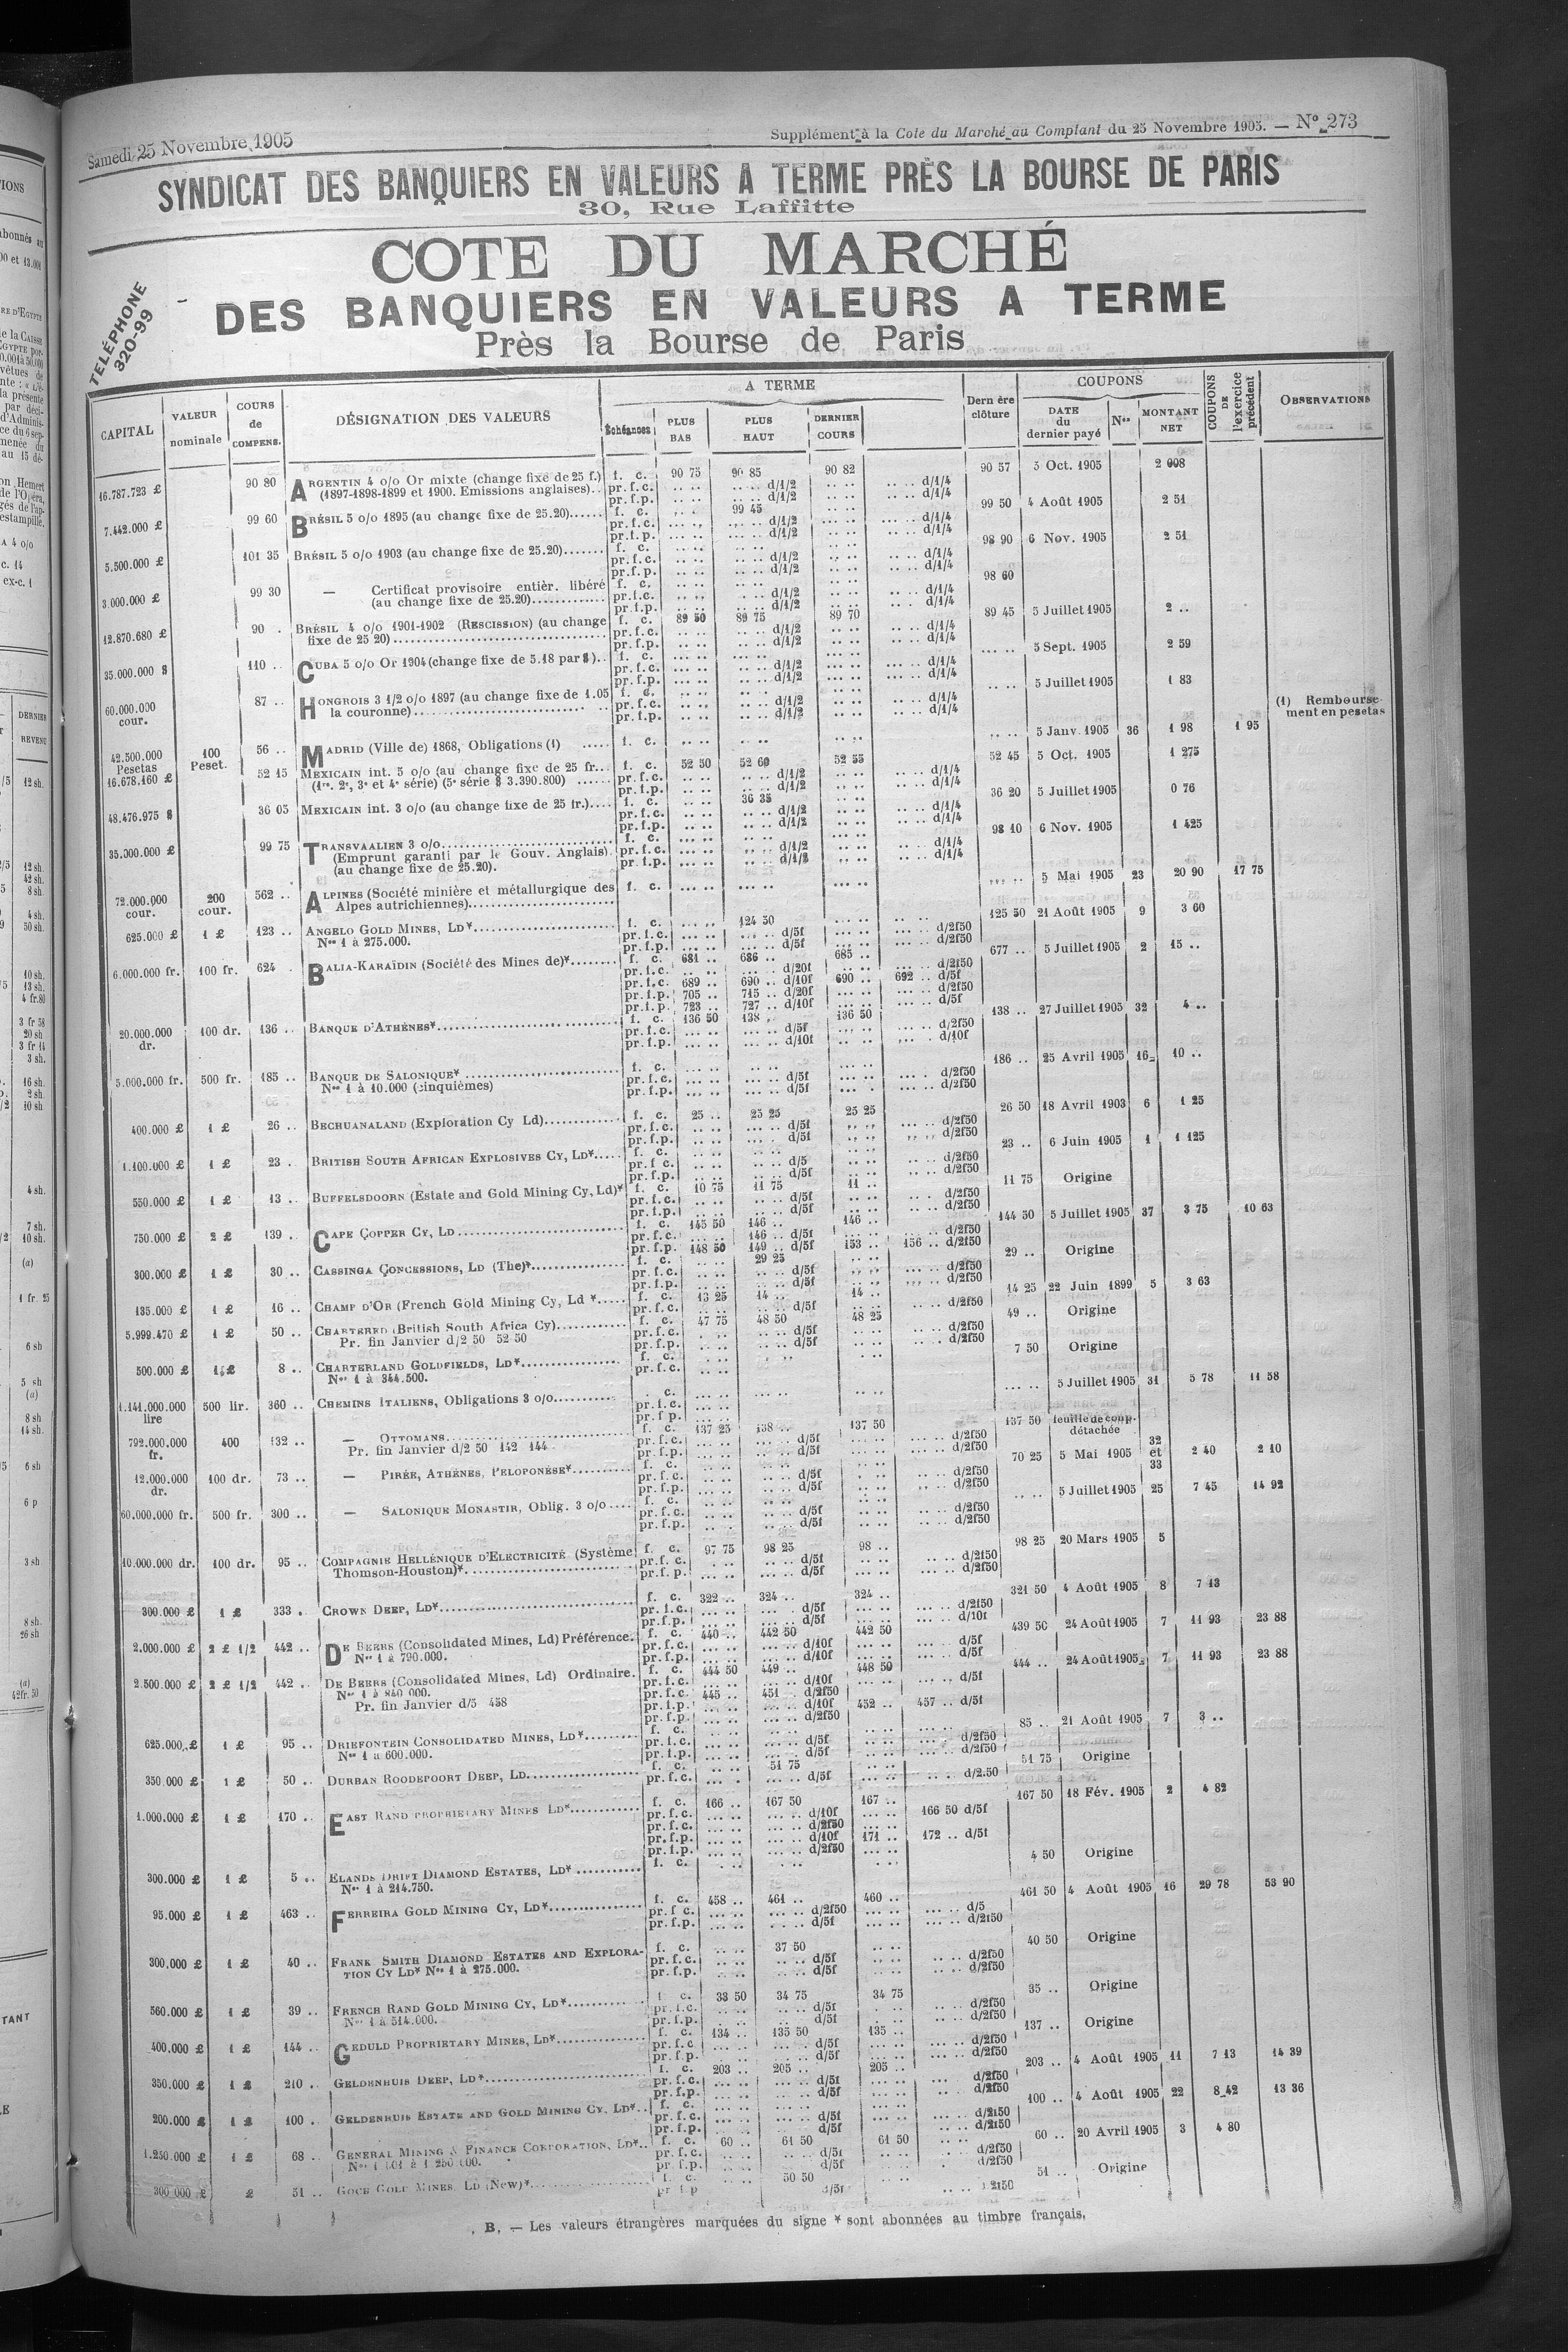 Samedi 25 Novembre 1905
Supplément à la Cote du Marché au Comptant du 25 Novembre 1905. — N° 273
SYNDICAT DES BANQUIERS EN VALEURS A TERME PRÈS LA BOURSE DE PARIS
30, Rue Laffitte
COTE DU MARCHÉ
DES BANQUIERS EN VALEURS A TERME
Près la Bourse de Paris
TELÉPHONE
320-99
CAPITAL VALEUR nominale COURS de COMPENS. DÉSIGNATION DES VALEURS A TERME Échéances PLUS BAS PLUS HAUT DERNIER COURS Dernière clôture COUPONS DATE du dernier payé Nos MONTANT NET COUPONS DE l'exercice précédent OBSERVATIONS
16.787.723 £ 90 80 ARGENTIN 4 o/o Or mixte (change fixe de 25 f.) f. c. 90 75 90 85 90 82 90 57 5 Oct. 1905 2 008
(1897-1898-1899 et 1900. Emissions anglaises).. pr.f.c. d/1/2 d/1/4
pr.f.p. d/1/2 d/1/4
7.442.000 £ 99 60 BRÉSIL 5 o/o 1895 (au change fixe de 25.20)...... f. c. 99 45 99 50 4 Août 1905 2 51
pr.f.c. d/1/2 d/1/4
pr.f.p. d/1/2 d/1/4
5.500.000 £ 101 35 BRÉSIL 5 o/o 1903 (au change fixe de 25.20)....... f. c. 98 90 6 Nov. 1905 2 51
pr.f.c. d/1/2 d/1/4
pr.f.p. d/1/2 d/1/4
3.000.000 £ 99 30 — Certificat provisoire entièr. libéré f. c. 98 60
(au change fixe de 25.20)............. pr.f.c. d/1/2 d/1/4
pr.f.p. d/1/2 d/1/4
12.870.680 £ 90 . BRÉSIL 4 o/o 1901-1902 (RESCISSION) (au change f. c. 89 50 89 75 89 70 89 45 5 Juillet 1905 2 ..
fixe de 25 20)..... pr.f.c. d/1/2 d/1/4
pr.f.p. d/1/2 d/1/4
35.000.000 $ 110 .. CUBA 5 o/o Or 1904 (change fixe de 5.18 par $).. f. c. 5 Sept. 1905 2 59
pr.f.c. d/1/2 d/1/4
pr.f.p. d/1/2 d/1/4
60.000.000 cour. 87 .. HONGROIS 3 1/2 o/o 1897 (au change fixe de 1.05 f. c. 5 Juillet 1905 1 83
la couronne)..... pr.f.c. d/1/2 d/1/4
pr.f.p. d/1/2 d/1/4
(1) Remboursement en pesetas
42.500.000 Pesetas 100 Peset. 56 .. MADRID (Ville de) 1868, Obligations (1) ..... f. c. 5 Janv. 1905 36 1 98 1 95
16.678.160 £ 52 15 MEXICAIN int. 5 o/o (au change fixe de 25 fr... f. c. 52 50 52 60 52 55 52 45 5 Oct. 1905 1 275
(1re, 2e, 3e et 4e série) (5e série $ 3.390.800) ...... pr.f.c. d/1/2 d/1/4
pr.f.p. d/1/2 d/1/4
48.476.975 $ 36 05 MEXICAIN int. 3 o/o (au change fixe de 25 fr.).... f. c. 36 35 36 20 5 Juillet 1905 0 76
pr.f.c. d/1/2 d/1/4
pr.f.p. d/1/2 d/1/4
35.000.000 £ 99 75 TRANSVAALIEN 3 o/o..... f. c. 98 10 6 Nov. 1905 1 425
(Emprunt garanti par le Gouv. Anglais). pr.f.c. d/1/2 d/1/4
(au change fixe de 25.20). pr.f.p. d/1/2 d/1/4
72.000.000 cour. 200 cour. 562 .. ALPINES (Société minière et métallurgique des f. c. 5 Mai 1905 23 20 90 17 75
Alpes autrichiennes).....
625.000 £ 1 £ 123 .. ANGELO GOLD MINES, LD*..... f. c. 124 50 125 50 21 Août 1905 9 3 60
Nos 1 à 275.000. pr.f.c. d/5f d/2f50
pr.f.p. d/5f d/2f50
6.000.000 fr. 100 fr. 624 . BALIA-KARAÏDIN (Société des Mines de)*........ f. c. 681 .. 686 .. 685 .. 677 .. 5 Juillet 1905 2 15 ..
pr.f.c. d/20f d/2f50
pr.f.c. 689 .. 690 .. d/10f 690 .. 692 .. d/5f
pr.f.p. 705 .. 715 .. d/20f d/2f50
pr.f.p. 723 .. 727 .. d/10f d/5f
20.000.000 dr. 100 dr. 136 .. BANQUE D'ATHÈNES*..... f. c. 136 50 138 . 136 50 138 .. 27 Juillet 1905 32 4 ..
pr.f.c. d/5f d/2f50
pr.f.p. d/10f d/10f
5.000.000 fr. 500 fr. 185 .. BANQUE DE SALONIQUE*..... f. c. 186 .. 25 Avril 1905 16 10 ..
Nos 1 à 10.000 (cinquièmes) pr.f.c. d/5f d/2f50
pr.f.p. d/5f d/2f50
400.000 £ 1 £ 26 .. BECHUANALAND (Exploration Cy Ld)..... f. c. 25 .. 25 25 25 25 26 50 18 Avril 1903 6 1 25
pr.f.c. d/5f d/2f50
pr.f.p. d/5f d/2f50
1.100.000 £ 1 £ 23 . BRITISH SOUTH AFRICAN EXPLOSIVES CY, LD*..... f. c. 23 .. 6 Juin 1905 1 1 125
pr.f.c. d/5 d/2f50
pr.f.p. d/5f d/2f50
550.000 £ 1 £ 13 .. BUFFELSDOORN (Estate and Gold Mining Cy, Ld)* f. c. 10 75 11 75 11 .. 11 75 Origine
pr.f.c. d/5f d/2f50
pr.f.p. d/5f d/2f50
750.000 £ 2 £ 139 .. CAPE COPPER CY, LD..... f. c. 145 50 146 .. 146 .. 144 50 5 Juillet 1905 37 3 75 10 63
pr.f.c. 146 .. d/5f d/2f50
pr.f.p. 148 50 149 .. d/5f 153 .. 156 .. d/2f50
300.000 £ 1 £ 30 .. CASSINGA CONCESSIONS, LD (The)*..... f. c. 29 25 29 .. Origine
pr.f.c. d/5f d/2f50
pr.f.p. d/5f d/2f50
135.000 £ 1 £ 16 .. CHAMP D'OR (French Gold Mining Cy, Ld *..... f. c. 13 25 14 .. 14 .. 14 25 22 Juin 1899 5 3 63
pr.f.c. d/5f d/2f50
5.999.470 £ 1 £ 50 .. CHARTERED (British South Africa Cy)..... f. c. 47 75 48 50 48 25 49 .. Origine
Pr. fin Janvier d/2 50 52 50 pr.f.c. d/5f d/2f50
pr.f.p. d/5f d/2f50
500.000 £ 1 £ 8 .. CHARTERLAND GOLDFIELDS, LD*..... f. c. 7 50 Origine
Nos 1 à 344.500. pr.f.c.
1.141.000.000 lire 500 lir. 360 .. CHEMINS ITALIENS, Obligations 3 o/o..... c. 5 Juillet 1905 31 5 78 11 58
pr.f.c.
pr.f.p.
792.000.000 fr. 400 132 .. — OTTOMANS..... f. c. 137 25 138 .. 137 50 137 50 feuille de coup. détachée
Pr. fin Janvier d/2 50 142 144 pr.f.c. d/5f d/2f50
pr.f.p. d/5f d/2f50
12.000.000 dr. 100 dr. 73 .. — PIRÉE, ATHÈNES, PELOPONÈSE*..... f. c. 70 25 5 Mai 1905 32 et 33 2 40 2 10
pr.f.c. d/5f d/2f50
pr.f.p. d/5f d/2f50
60.000.000 fr. 500 fr. 300 .. — SALONIQUE MONASTIR, Oblig. 3 o/o .... f. c. 5 Juillet 1905 25 7 45 14 92
pr.f.c. d/5f d/2f50
pr.f.p. d/5f d/2f50
10.000.000 dr. 100 dr. 95 .. COMPAGNIE HELLÉNIQUE D'ELECTRICITÉ (Système f. c. 97 75 98 25 98 .. 98 25 20 Mars 1905 5
Thomson-Houston)*..... pr.f.c. d/5f d/2f50
pr.f.p. d/5f d/2f50
300.000 £ 1 £ 333 . CROWN DEEP, LD*..... f. c. 322 .. 324 .. 324 .. 321 50 4 Août 1905 8 7 13
pr.f.c. d/5f d/2f50
pr.f.p. d/5f d/10f
2.000.000 £ 2 £ 1/2 442 .. DE BEERS (Consolidated Mines, Ld) Préférence. f. c. 440 .. 442 50 442 50 439 50 24 Août 1905 7 11 93 23 88
Nos 1 à 790.000. pr.f.c. d/10f d/5f
pr.f.p. d/10f d/5f
2.500.000 £ 2 £ 1/2 442 .. DE BEERS (Consolidated Mines, Ld) Ordinaire. f. c. 444 50 449 .. 448 50 444 .. 24 Août 1905 7 11 93 23 88
Nos 1 à 840 000. pr.f.c. d/10f d/5f
Pr. fin Janvier d/5 458 pr.f.c. 445 .. 451 . d/2f50
pr.f.p. d/10f 452 .. 457 .. d/5f
pr.f.p. d/2f50
625.000 £ 1 £ 95 .. DRIEFONTEIN CONSOLIDATED MINES, LD*..... f. c. 85 .. 21 Août 1905 7 3 ..
Nos 1 à 600.000. pr.f.c. d/5f d/2f50
pr.f.p. d/5f d/2f50
350.000 £ 1 £ 50 .. DURBAN ROODEPOORT DEEP, LD..... f. c. 51 75 51 75 Origine
pr.f.c. d/5f d/2.50
1.000.000 £ 1 £ 170 .. EAST RAND PROPRIETARY MINES LD*..... f. c. 166 .. 167 50 167 .. 167 50 18 Fév. 1905 2 4 82
pr.f.c. d/10f 166 50 d/5f
pr.f.c. d/2f50
pr.f.p. d/10f 171 .. 172 .. d/5f
pr.f.p. d/2f50
300.000 £ 1 £ 5 .. ELANDS DRIFT DIAMOND ESTATES, LD*..... f. c. 4 50 Origine
Nos 1 à 214.750.
95.000 £ 1 £ 463 .. FERREIRA GOLD MINING CY, LD*..... f. c. 458 .. 461 .. 460 .. 461 50 4 Août 1905 16 29 78 53 90
pr.f.c. d/2f50 d/5
pr.f.p. d/5f d/2f50
300.000 £ 1 £ 40 .. FRANK SMITH DIAMOND ESTATES AND EXPLORA- f. c. 37 50 40 50 Origine
TION CY LD* Nos 1 à 275.000. pr.f.c. d/5f d/2f50
pr.f.p. d/5f d/2f50
560.000 £ 1 £ 39 .. FRENCH RAND GOLD MINING CY, LD*..... f. c. 33 50 34 75 34 75 35 .. Origine
Nos 1 à 514.000. pr.f.c. d/5f d/2f50
pr.f.p. d/5f d/2f50
400.000 £ 1 £ 144 .. GEDULD PROPRIETARY MINES, LD*..... f. c. 134 .. 135 50 135 .. 137 .. Origine
pr.f.c d/5f d/2f50
pr.f.p. d/5f d/2f50
350.000 £ 1 £ 210 . GELDENHUIS DEEP, LD*..... f. c. 203 .. 205 .. 205 .. 203 .. 4 Août 1905 11 7 13 14 39
pr.f.c. d/5f d/2f50
pr.f.p. d/5f d/2f50
200.000 £ 1 £ 100 . GELDENHUIS ESTATE AND GOLD MINING CY, LD*.. f. c. 100 .. 4 Août 1905 22 8 42 13 36
pr.f.c. d/5f d/2f50
pr.f.p. d/5f d/2f50
1.250.000 £ 1 £ 68 .. GENERAL MINING & FINANCE CORPORATION, LD*.. f. c. 60 .. 61 50 61 50 60 .. 20 Avril 1905 3 4 80
pr.f.c. d/5f d/2f50
pr.f.p. d/5f d/2f50
300 000 £ £ 51 .. GOCH GOLD MINES, LD (New)*..... f. c. 50 50 51 .. Origine
pr f.p d/5f 2f50
. B. — Les valeurs étrangères marquées du signe * sont abonnées au timbre français.